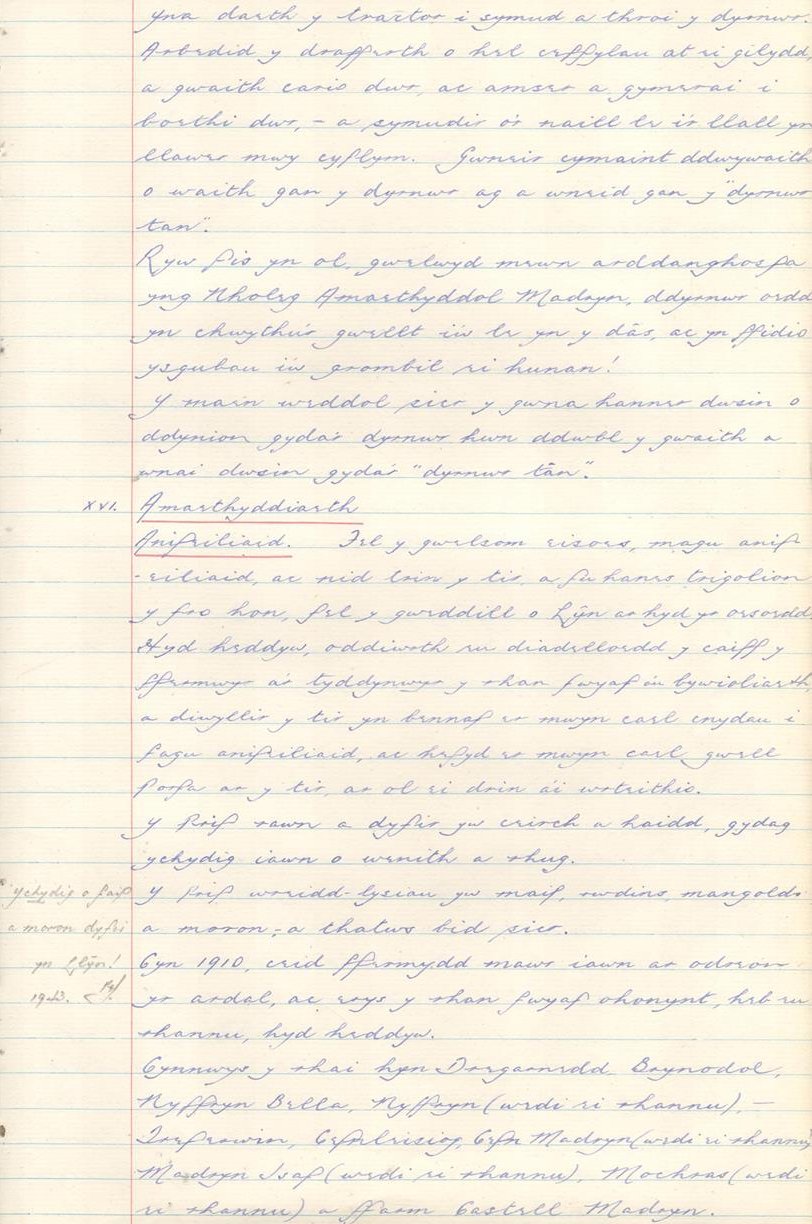 yna daeth y tractor i symud a throi y dyrnwr.
Arbedid y drafferth o hel ceffylau at ei gilydd,
a gwaith cario dwr, ac amser a gymerai i
boethi dwr, – a symudir o'r naill le i'r llall yn
llawer mwy cyflym. Gwneir cymaint ddwywaith
o waith gan y dyrnwr ag a wneid gan y "dyrnwr
tan".
Ryw fis yn ol, gwelwyd mewn arddanghosfa
yng Ngholeg Amaethyddol Madryn, ddyrnwr oedd
yn chwythu'r gwellt i'w le yn y dâs, ac yn ffidio
ysgubau i'w grombil ei hunan!
Y mae'n weddol sicr y gwna hanner dwsin o
ddynion gyda'r dyrnwr hwn ddwbl y gwaith a
wnai dwsin gyda'r "dyrnwr tân".
XVI. Amaethyddiaeth
Anifeiliaid. Fel y gwelsom eisoes, magu anif
-eiliaid, ac nid trin y tir, a fu hanes trigolion
y fro hon, fel y gweddill o Lŷn ar hyd yr oesoedd.
Hyd heddyw, oddiwrth eu diadelloedd y caiff y
ffermwyr a'r tyddynwyr y rhan fwyaf o'u bywioliaeth
a diwyllir y tir yn bennaf er mwyn cael cnydau i
fagu anifeiliaid, ac hefyd er mwyn cael gwell
porfa ar y tir, ar ol ei drin a'i wrteithio.
Y prif rawn a dyfir yw ceirch a haidd, gydag
ychydig iawn o wenith a rhug.
Ychydig o faip
a moron dyfir
yn Llŷn!
Y prif wreidd-lysiau yw maip, rwdins, mangolds
a moron; a thatws bid sicr.
Cyn 1910, ceid ffermydd mawr iawn ar odreon
yr ardal, ac erys y rhan fwyaf ohonynt, heb eu
rhannu, hyd heddyw.
Cynnwys y rhai hyn Dregarnedd, Brynodol,
Nyffryn Bella, Nyffryn (wedi ei rhannu), –
Trefgrwin, Cefnleisiog, Cefn Madryn (wedi ei rhannu)
Madryn Isaf (wedi ei rhannu), Mochras (wedi
ei rhannu) a ffarm Castell Madryn.